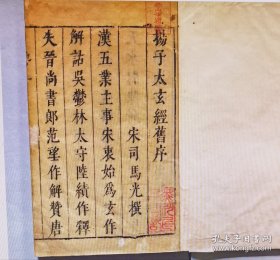 揚子太玄經舊序
宋司馬光撰
漢五業主事宋衷始爲玄作
解詁吳鬱林太守陸績作釋
失晉尚書郎范望作解贊唐
孔夫子旧书网